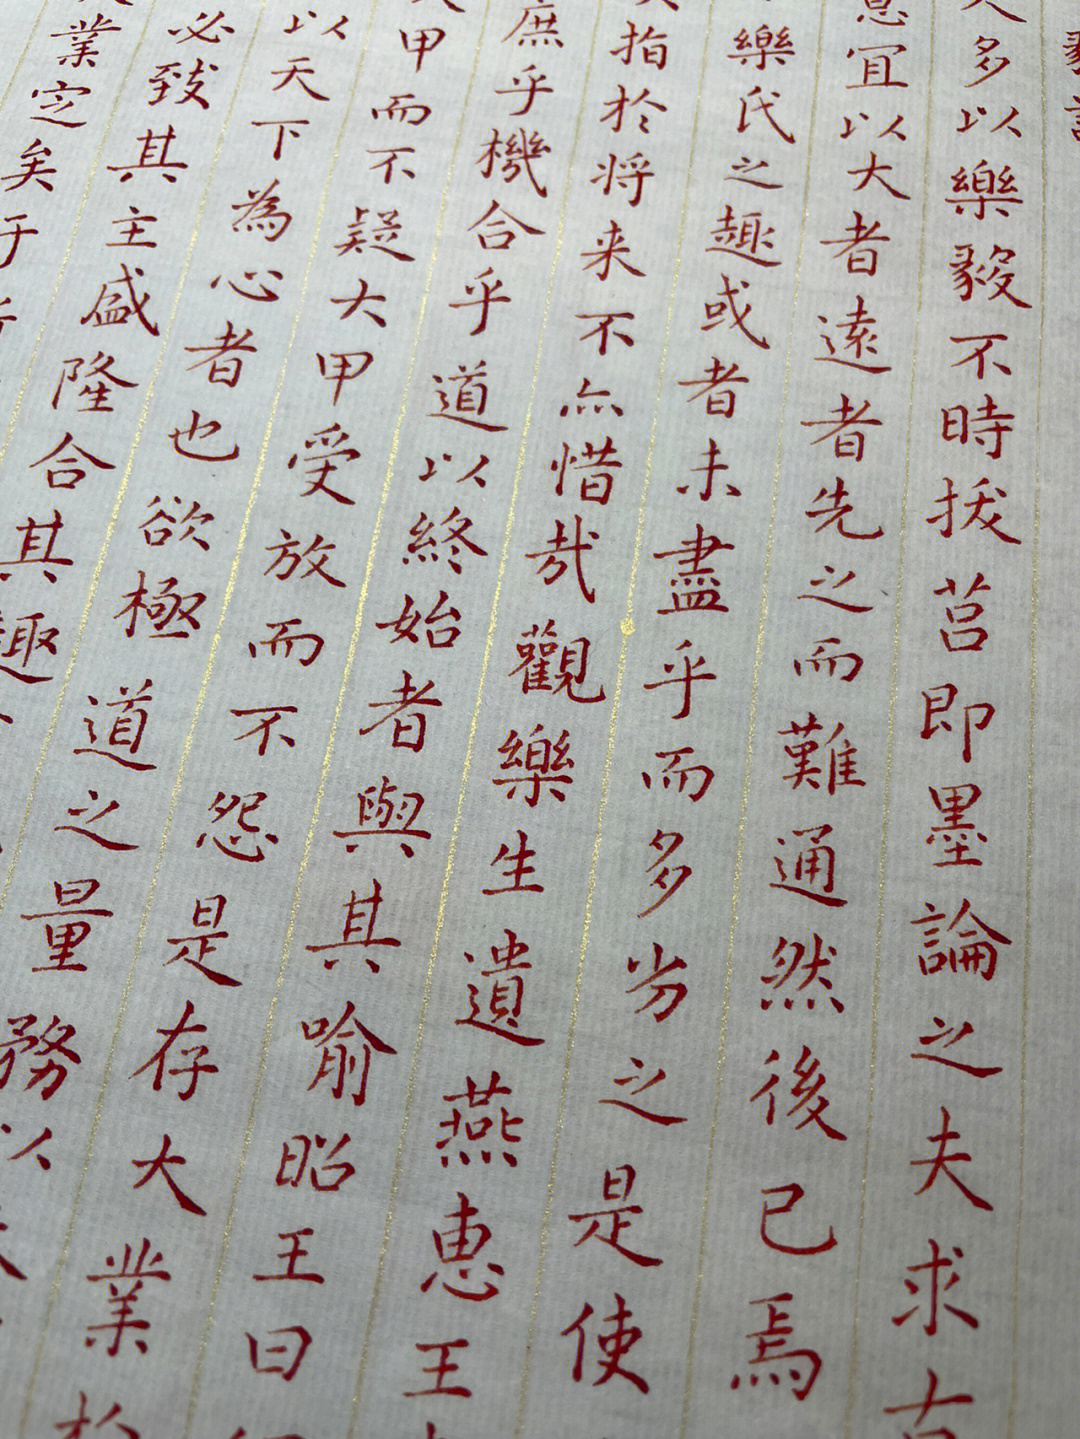 毅論
多以樂毅不時拔莒即墨論之夫求古
宜以大者遠者先之而難通然後已焉
樂氏之趣或者未盡乎而多劣之是使
指於将来不亦惜哉觀樂生遺燕惠王
庶乎機合乎道以終始者與其喻昭王曰
甲而不疑大甲受放而不怨是存大業於
以天下為心者也欲極道之量務以
必致其主盛隆合其趣
業定矣于